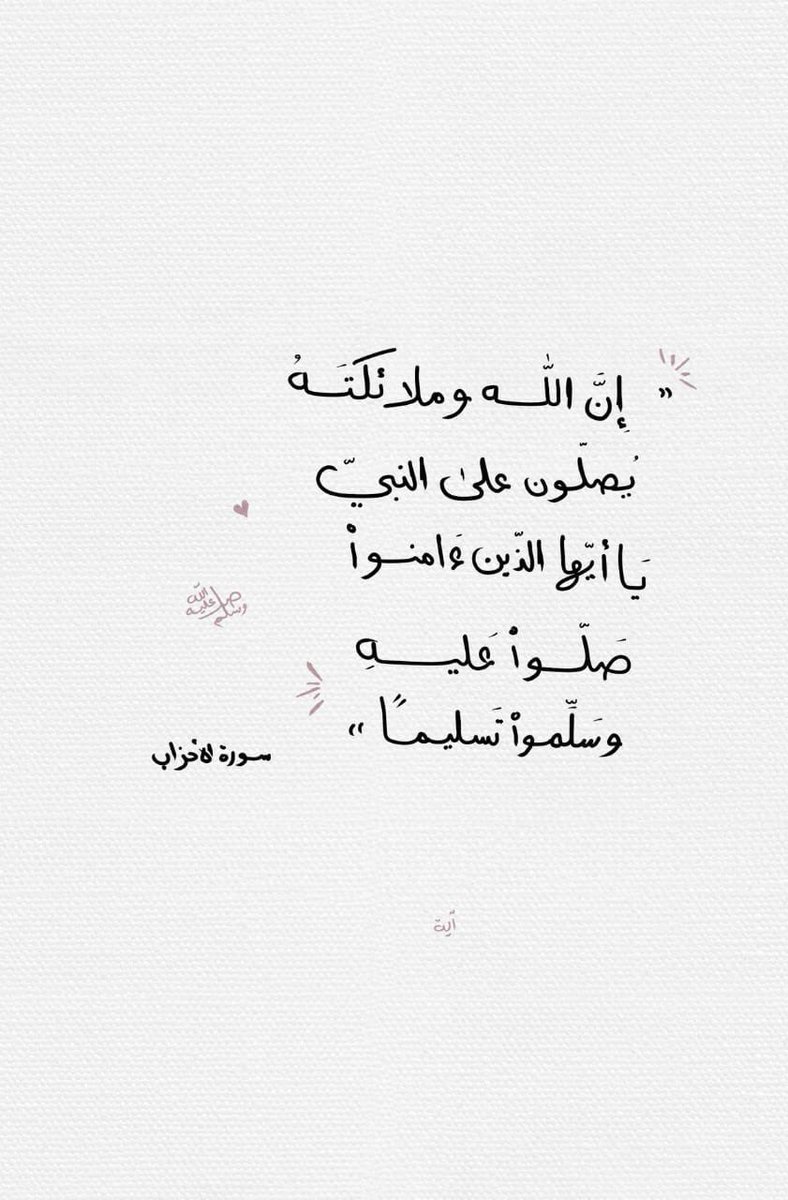 " إِنَّ اللّٰه وملائكتَهُ
يُصلّون علىٰ النبيّ
يَا أيّها الذّين ءَامنواْ
صَلّواْ عَليهِ
وسَلِّمواْ تَسليمًا "
سورة الأحزاب
صلى الله عليه وسلم
آية